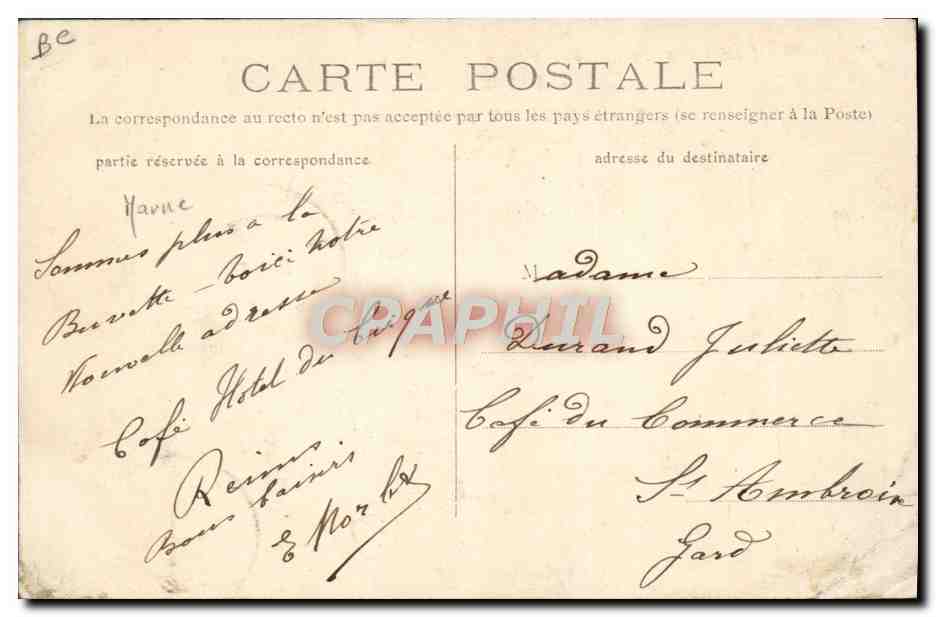 BC
CARTE POSTALE
La correspondance au recto n'est pas acceptée par tous les pays étrangers (se renseigner à la Poste)
partie réservée à la correspondance
Marne
Sommes plus a la
Buvette - voici notre
Nouvelle adresse
Café Hotel du Cirque
Reims
Bons baisers
E
adresse du destinataire
Madame
Durand Juliette
Café du Commerce
St Ambroix
Gard
CRAPHIL